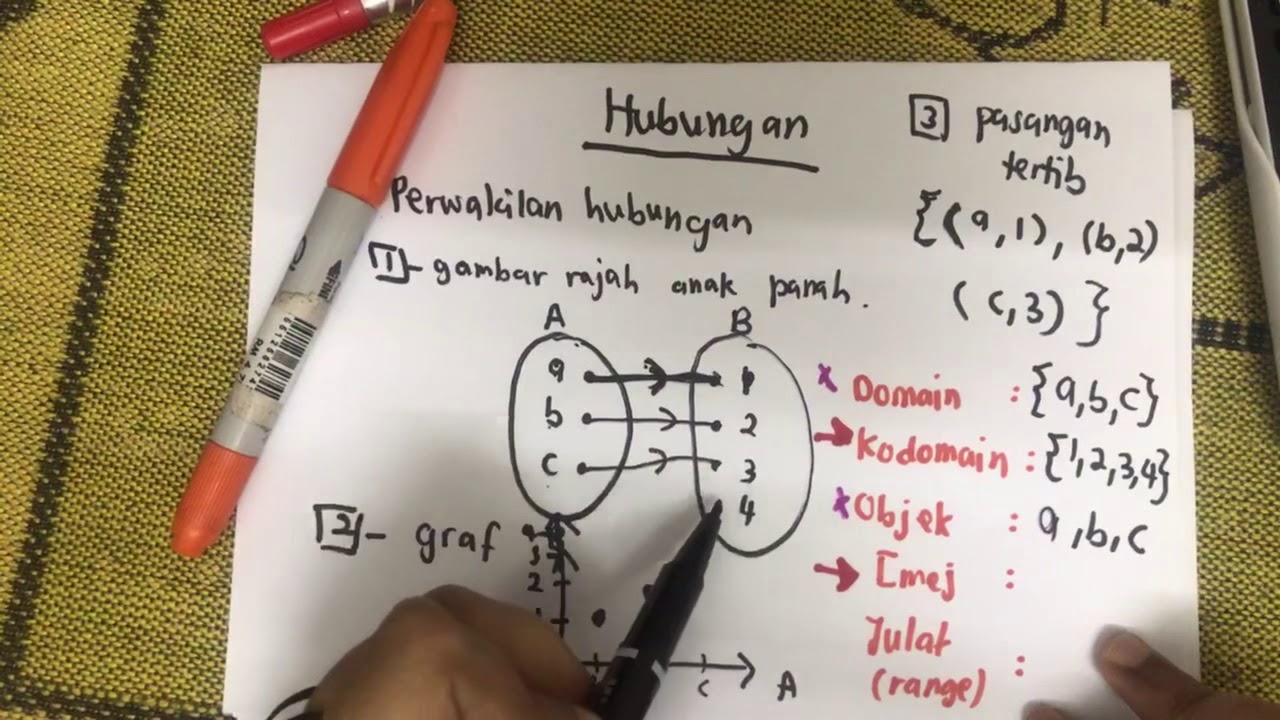 Hubungan
Perwakilan hubungan
1 - gambar rajah anak panah.
A B
a 1
b 2
c 3
4
2 - graf
4
3
2
1
c A
3 pasangan
tertib
{(a,1), (b,2)
(c,3)}
Domain : {a,b,c}
Kodomain : {1,2,3,4}
Objek : a,b,c
Imej :
Julat
(range) :